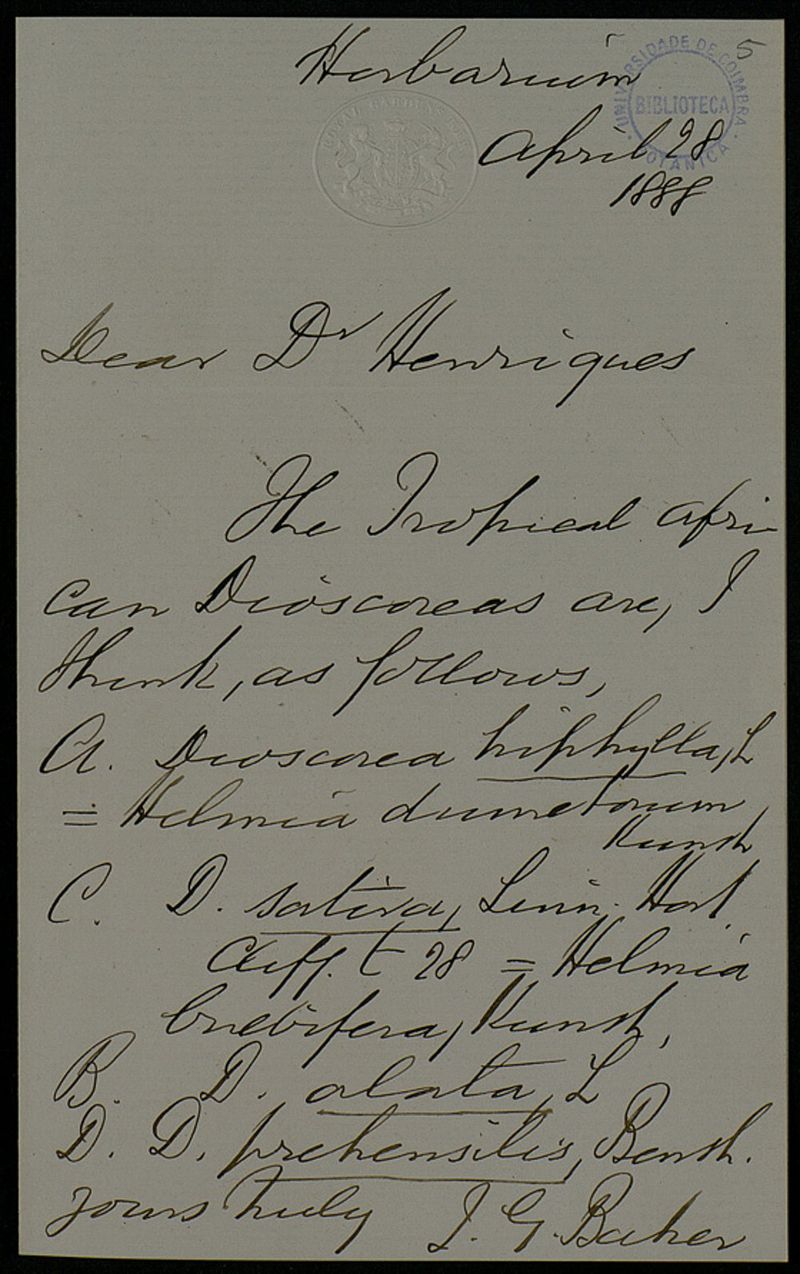 5
UNIVERSIDADE DE COIMBRA
BIBLIOTECA
BOTANICA
Herbarium
April 28
1888
Dear Dr Henriques
The Tropical Afri
can Dioscoreas are, I
think, as follows,
A. Dioscorea triphylla, L
= Helmia dumetorum,
Kunth
C. D. sativa, Linn. Hort
Cliff. t 28 = Helmia
bulbifera, Kunth,
B. D. alata, L
D. D. prehensilis, Benth.
Yours truly J. G. Baker